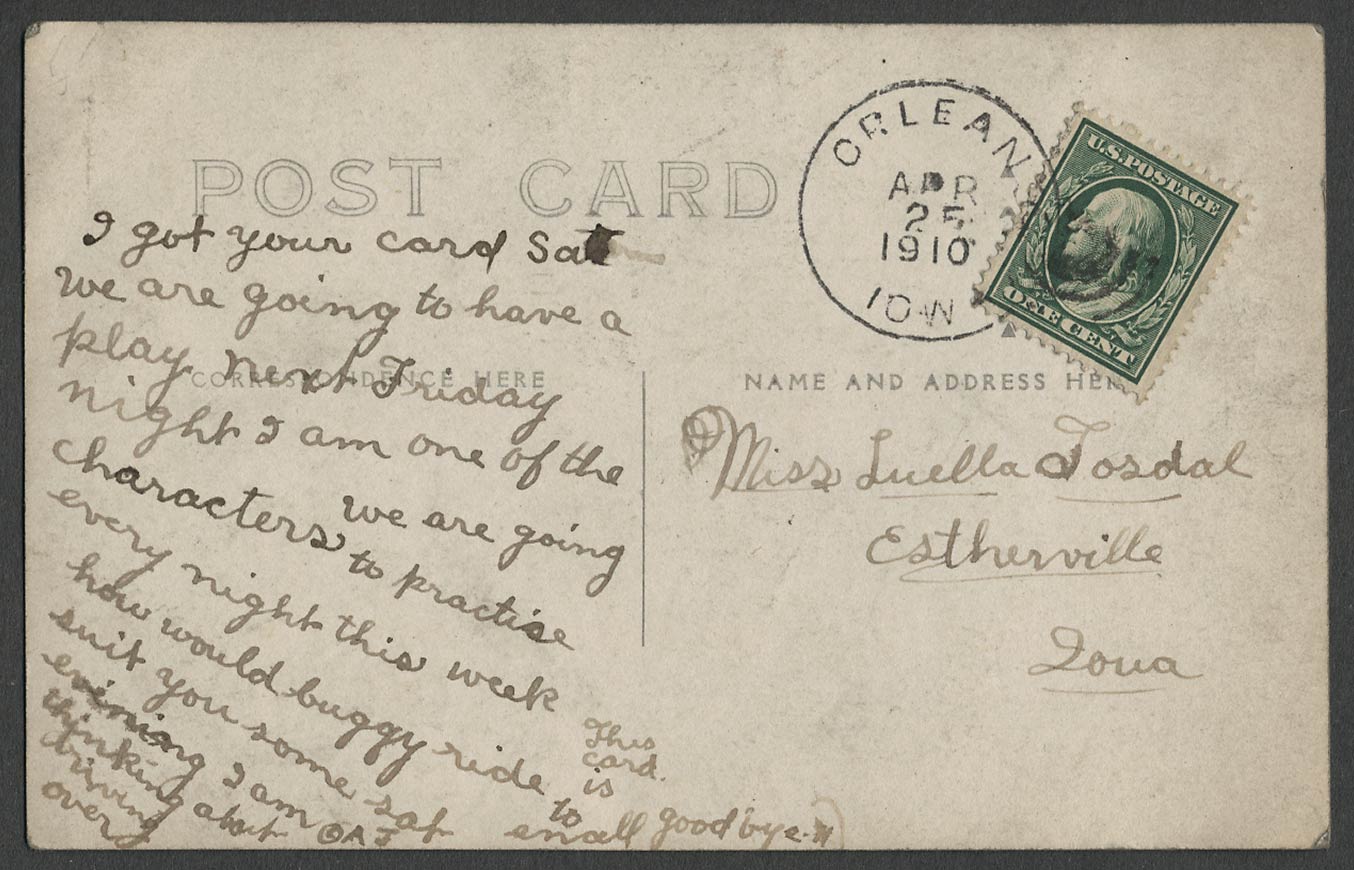 POST CARD
I got your card Sat
we are going to have a
play next Friday
night I am one of the
characters we are going
to practise
every night this week
how would buggy ride
suit you some sat
evining I am
thinking about
driving
over
OAJ
This
card
is
to
small good bye.
CORRESPONDENCE HERE
NAME AND ADDRESS HER
Miss Luella Tosdal
Estherville
Iowa
ORLEAN
APR
25
1910
IOW
U.S. POSTAGE
ONE CENT